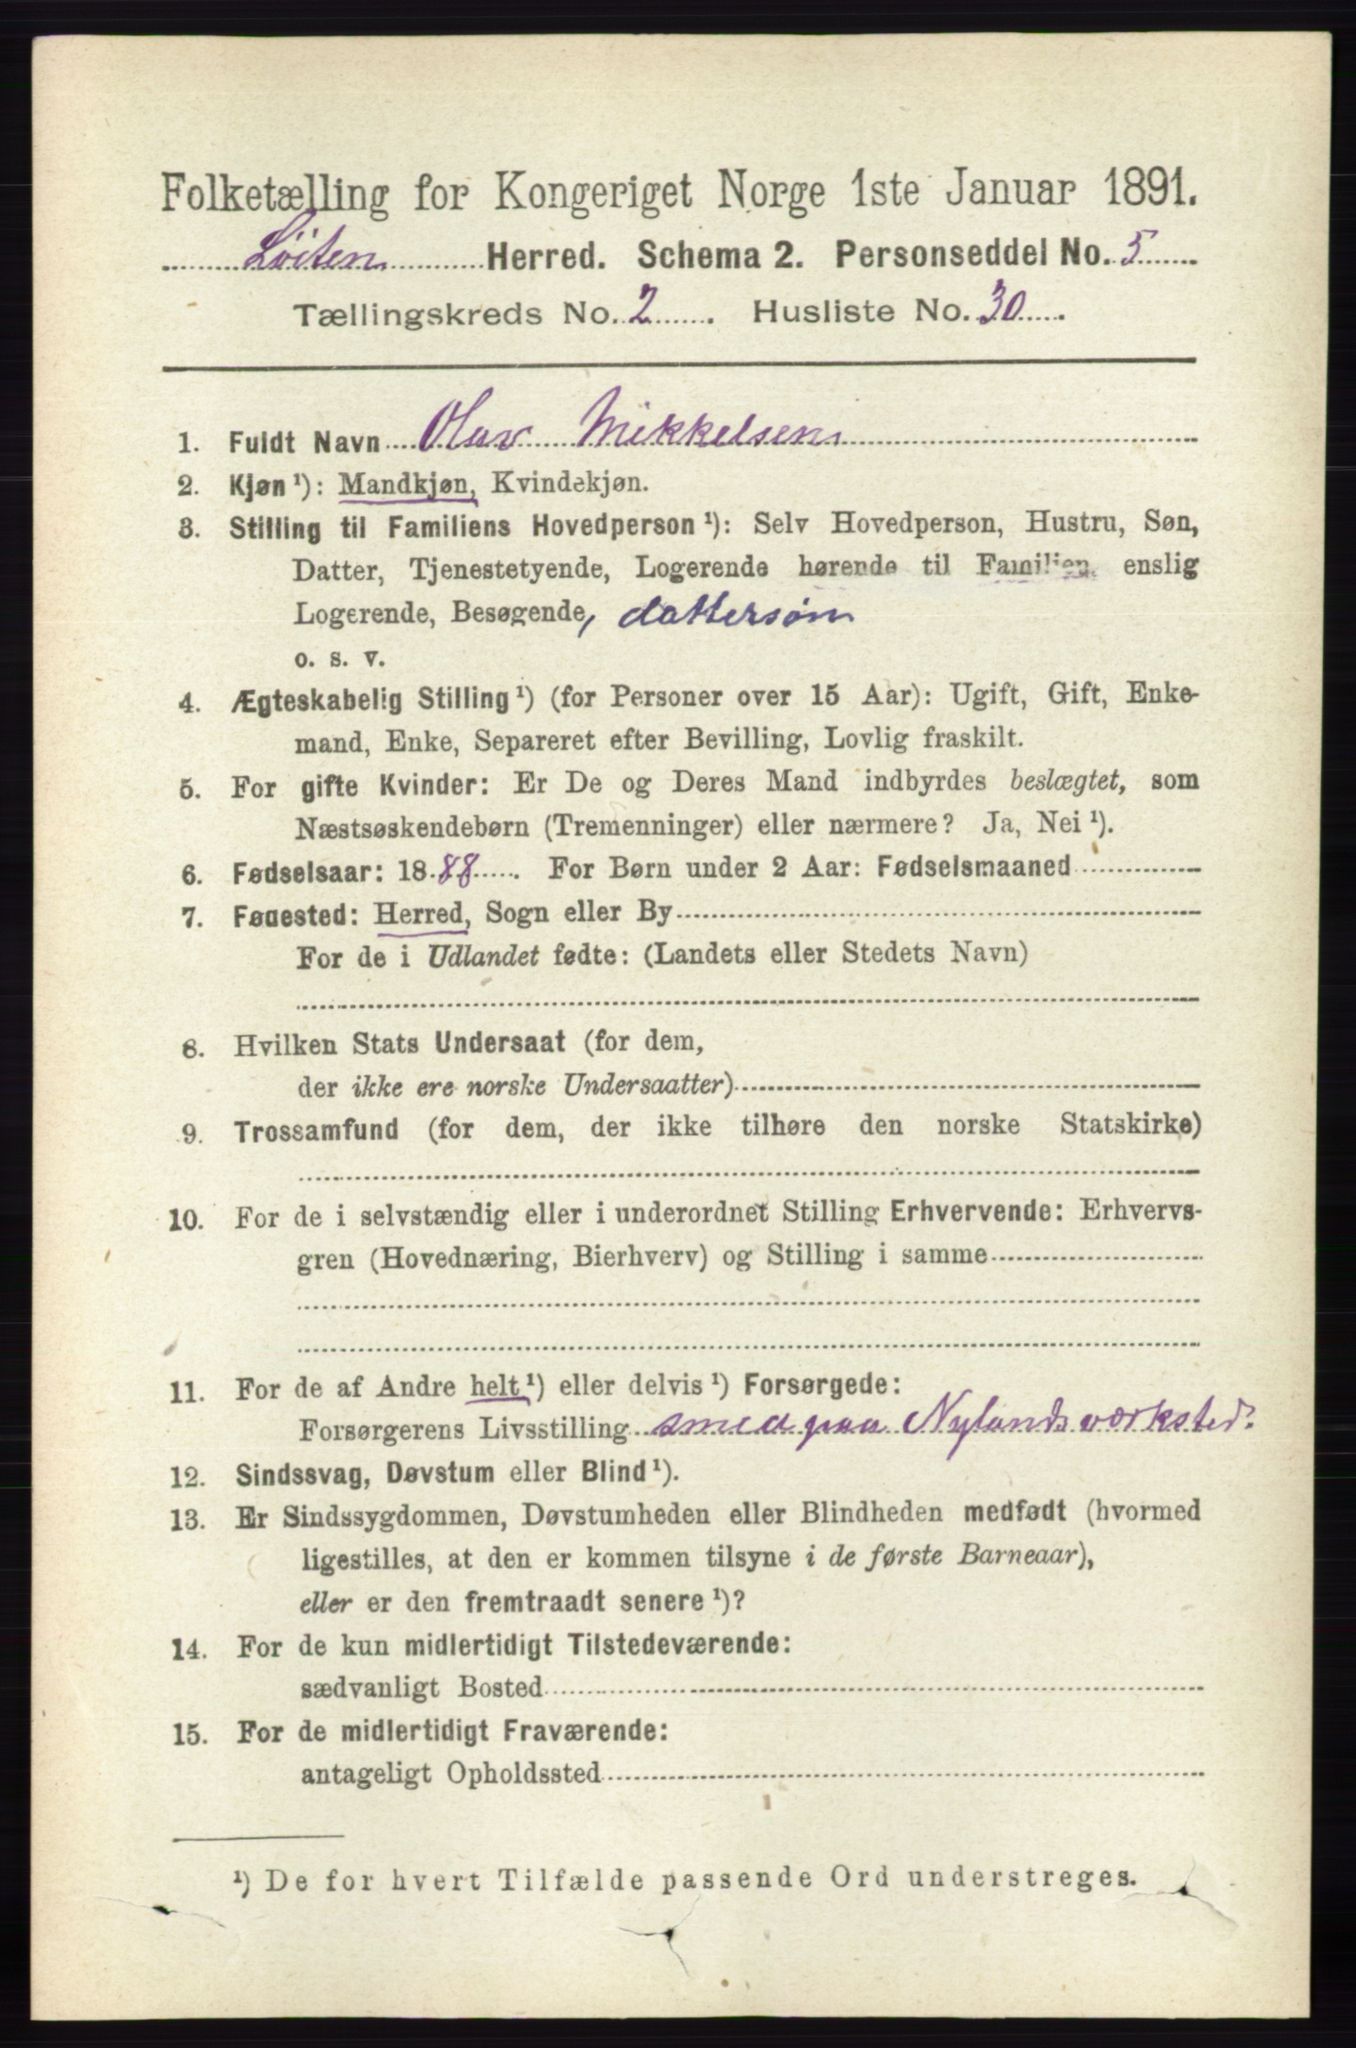 Folketælling for Kongeriget Norge 1ste Januar 1891.
Løiten Herred. Schema 2. Personseddel No. 5
Tællingskreds No. 2 . Husliste No. 30 .
1. Fuldt Navn Olav Mikkelsen
2. Kjøn ¹): Mandkjøn, Kvindekjøn.
3. Stilling til Familiens Hovedperson ¹): Selv Hovedperson, Hustru, Søn,
Datter, Tjenestetyende, Logerende hørende til Familien, enslig
Logerende, Besøgende, dattersøn
o. s. v.
4. Ægteskabelig Stilling ¹) (for Personer over 15 Aar): Ugift, Gift, Enke-
mand, Enke, Separeret efter Bevilling, Lovlig fraskilt.
5. For gifte Kvinder: Er De og Deres Mand indbyrdes beslægtet, som
Næstsøskendebørn (Tremenninger) eller nærmere? Ja, Nei ¹).
6. Fødselsaar: 1888 . For Børn under 2 Aar: Fødselsmaaned
7. Fødested: Herred, Sogn eller By
For de i Udlandet fødte: (Landets eller Stedets Navn)
8. Hvilken Stats Undersaat (for dem,
der ikke ere norske Undersaatter)
9. Trossamfund (for dem, der ikke tilhøre den norske Statskirke)
10. For de i selvstændig eller i underordnet Stilling Erhvervende: Erhvervs-
gren (Hovednæring, Bierhverv) og Stilling i samme
11. For de af Andre helt ¹) eller delvis ¹) Forsørgede:
Forsørgerens Livsstilling smed paa Nylands værksted.
12. Sindssvag, Døvstum eller Blind ¹).
13. Er Sindssygdommen, Døvstumheden eller Blindheden medfødt (hvormed
ligestilles, at den er kommen tilsyne i de første Barneaar),
eller er den fremtraadt senere ¹)?
14. For de kun midlertidigt Tilstedeværende:
sædvanligt Bosted
15. For de midlertidigt Fraværende:
antageligt Opholdssted
¹) De for hvert Tilfælde passende Ord understreges.